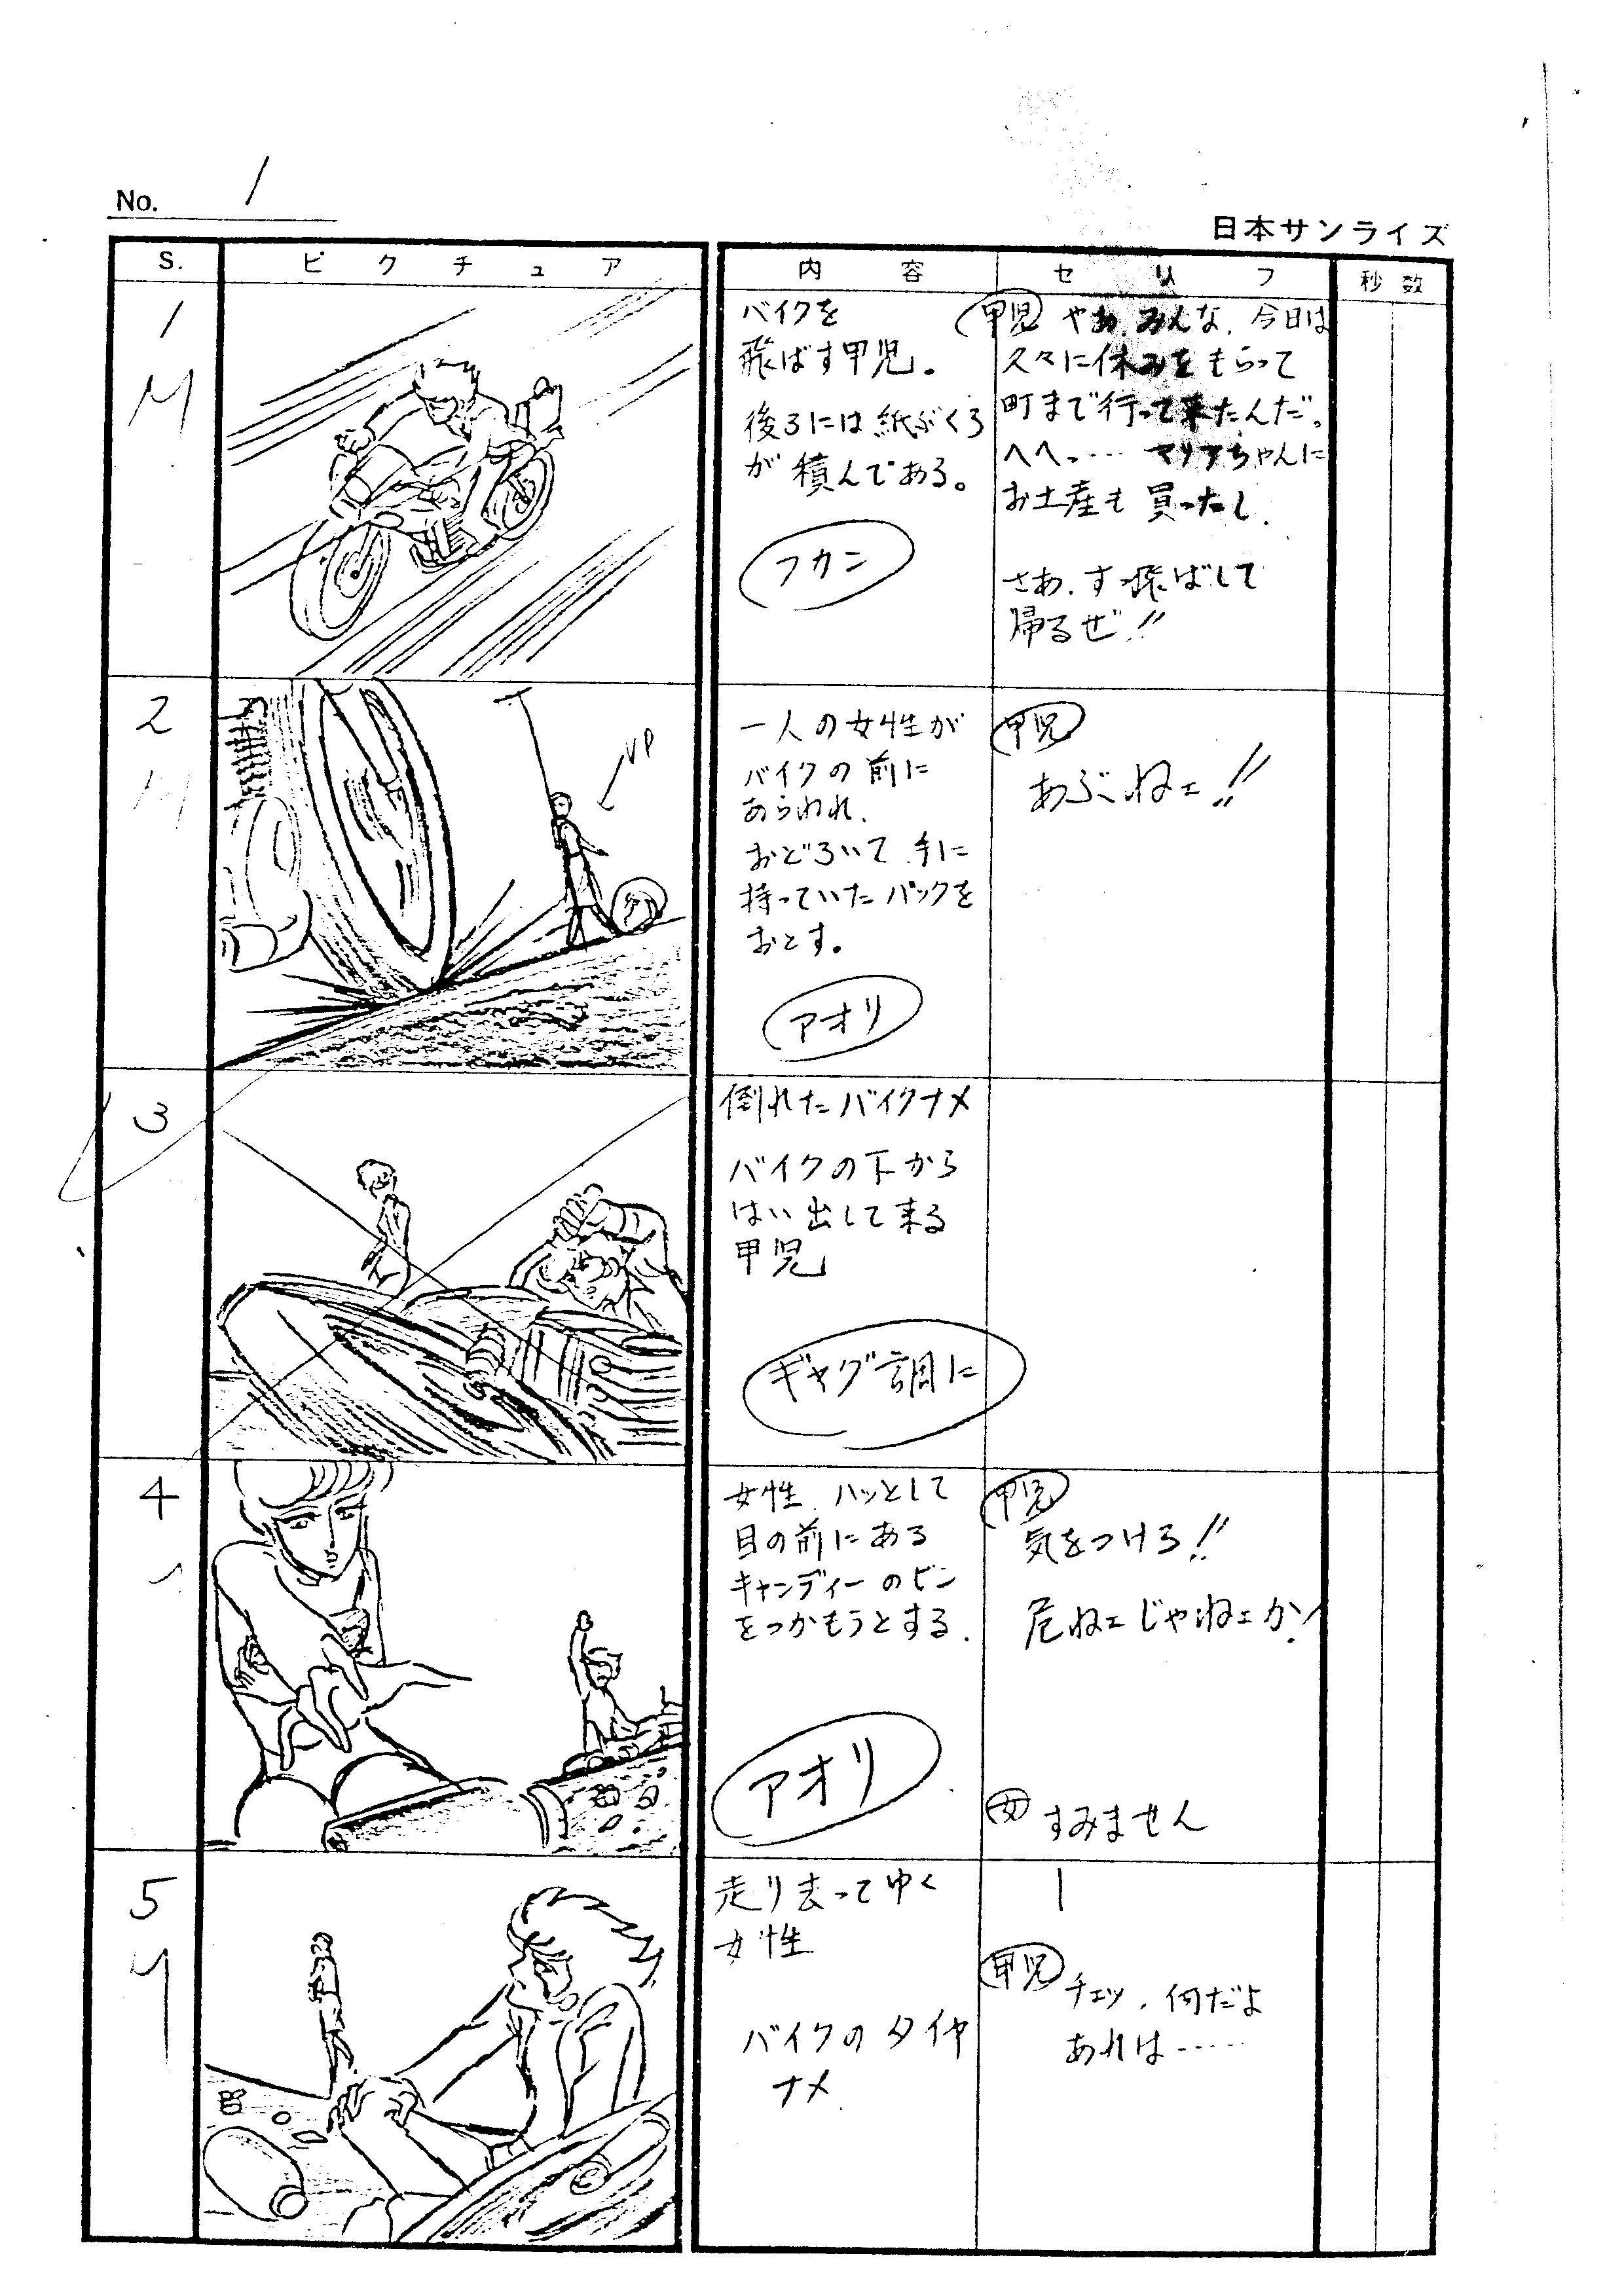 No. 1
日本サンライズ
S. ピクチュア 内容 セリフ 秒数
1
バイクを
飛ばす甲児。
後ろには紙ぶくろ
が積んである。
フカン
甲児 やあ、みんな、今日は
久々に休みをもらって
町まで行って来たんだ。
へへっ…… マリアちゃんに
お土産も買ったし、
さあ、すっ飛ばして
帰るぜ!!
2
UP
一人の女性が
バイクの前に
あらわれ、
おどろいて手に
持っていたバックを
おとす。
アオリ
甲児
あぶねェ!!
3
倒れたバイクナメ
バイクの下から
はい出して来る
甲児
ギャグ調に
4
女性、ハッとして
目の前にある
キャンディーのビン
をつかもうとする。
アオリ
甲児
気をつけろ!!
危ねェじゃねェか!
女 すみません
5
走り去ってゆく
女性
バイクのタイヤ
ナメ
甲児 チェッ、何だよ
あれは……